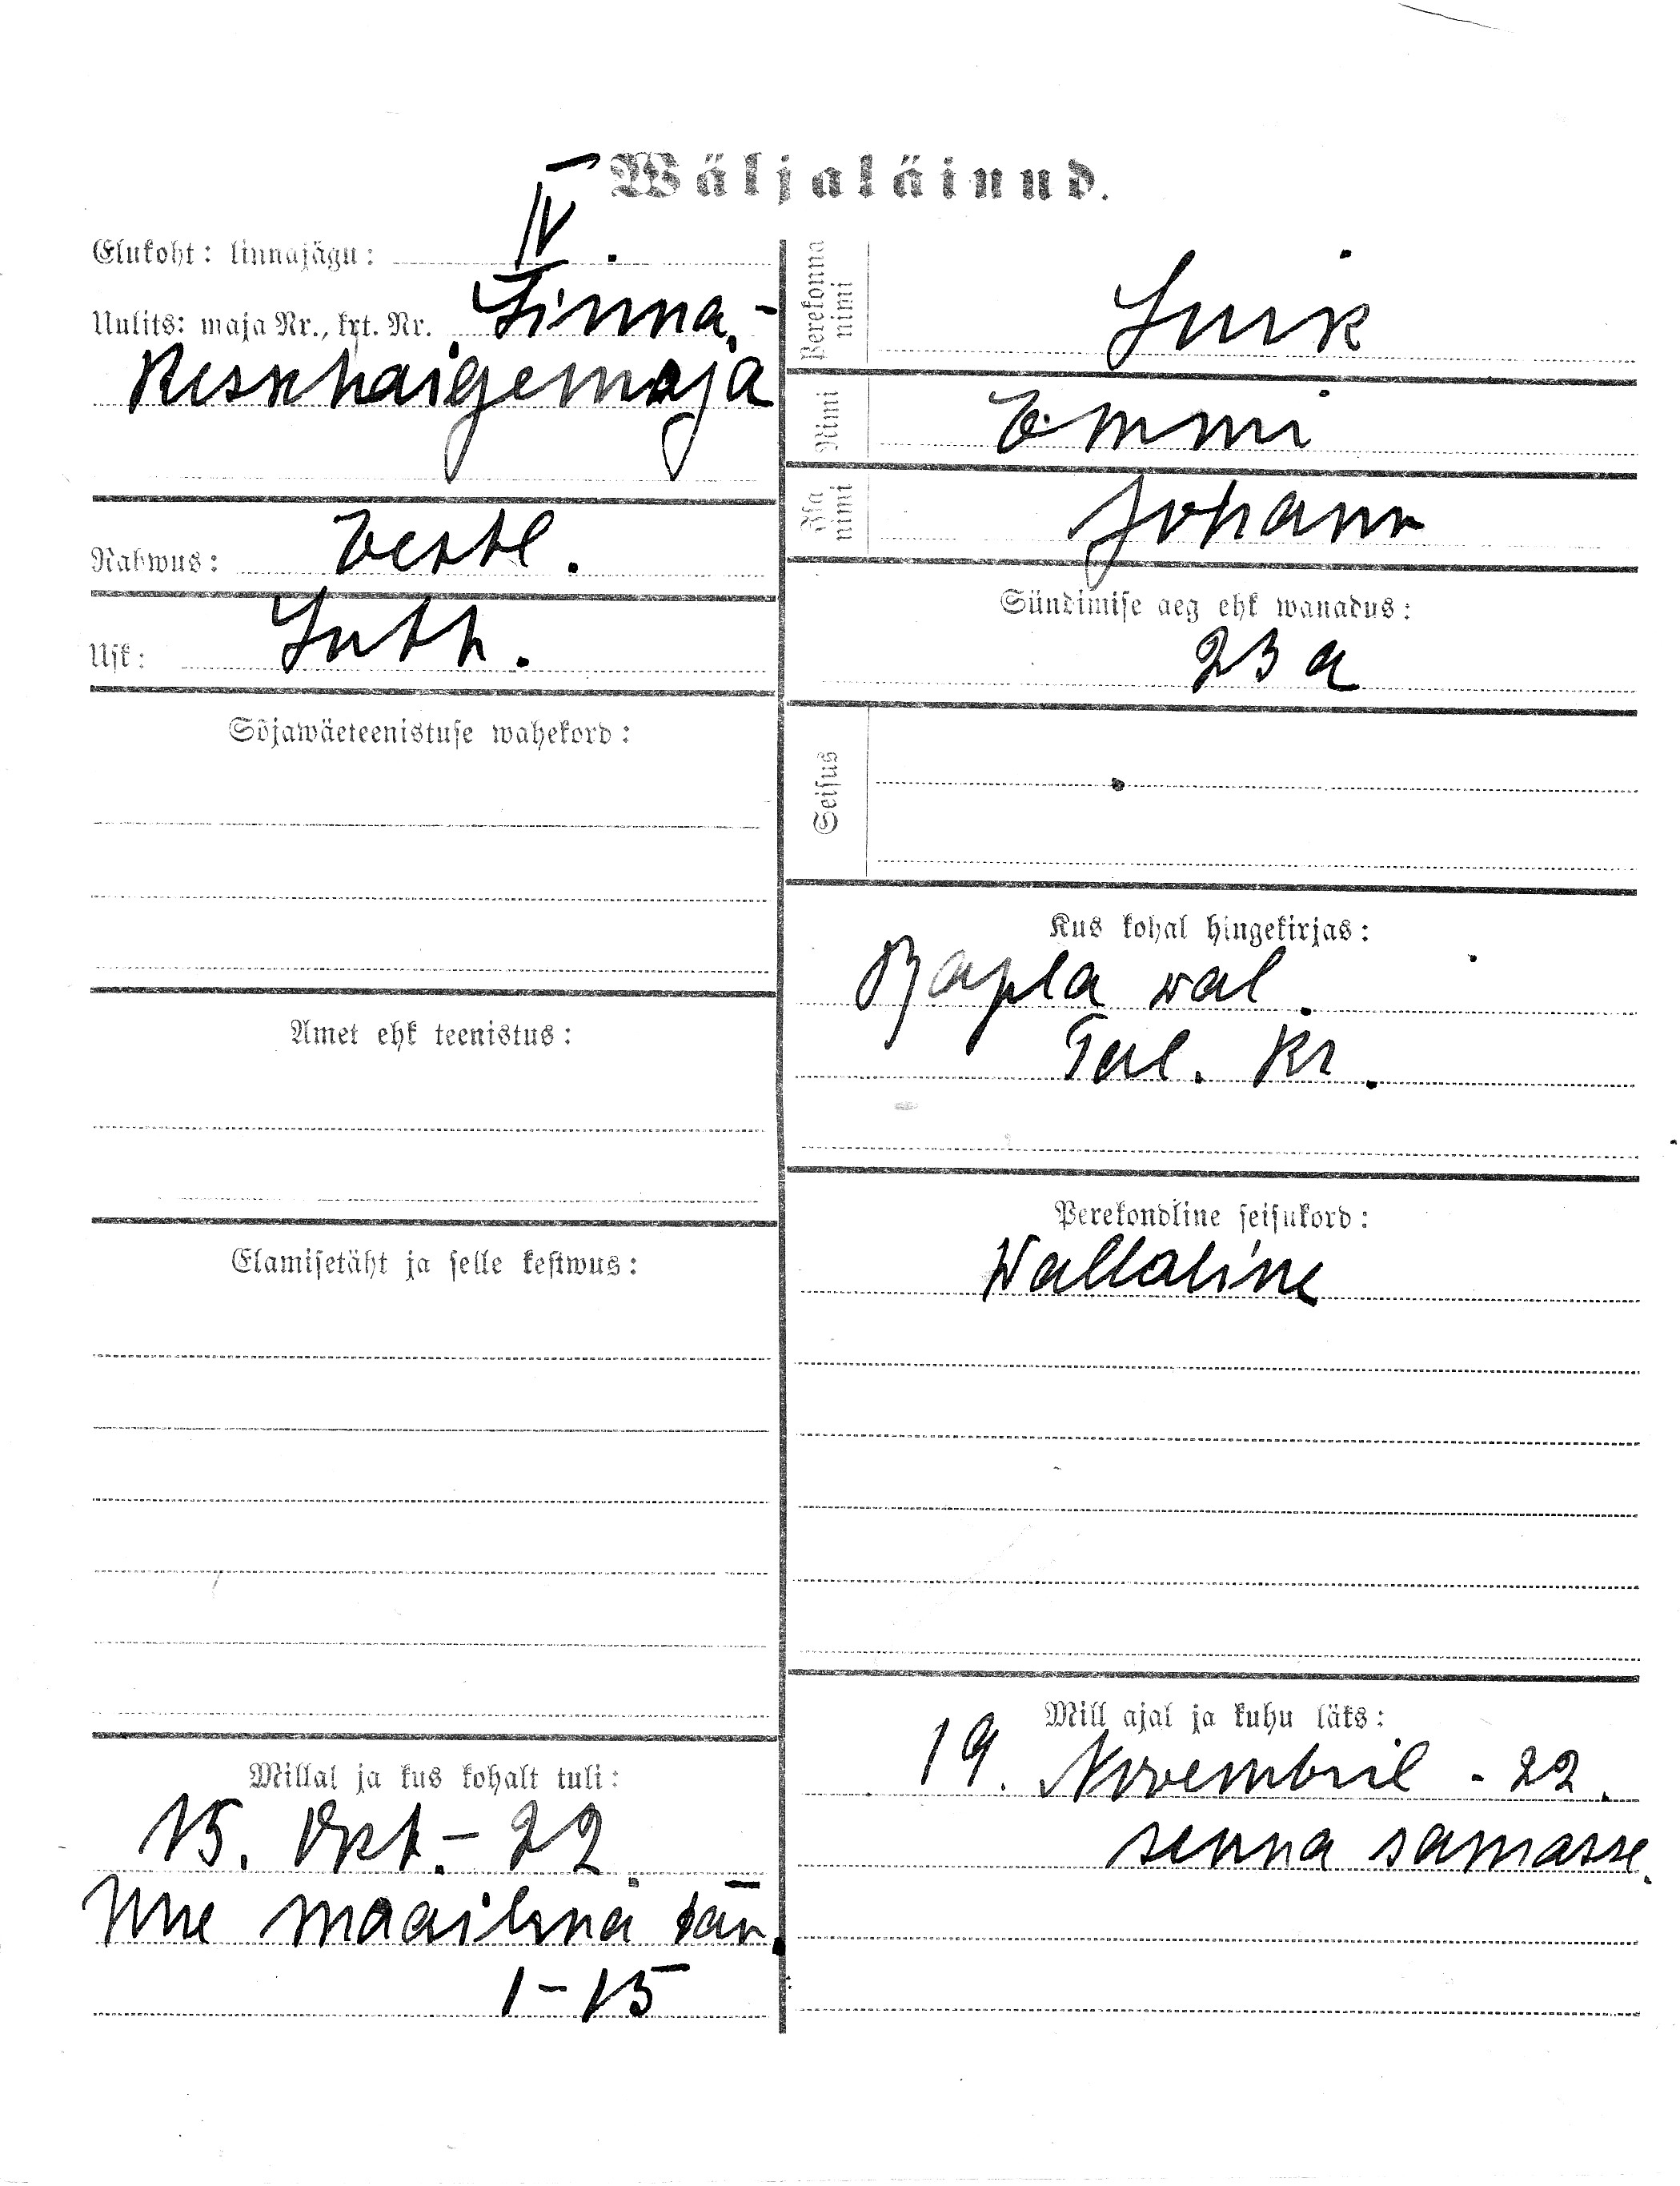 Wäljaläinud.
Elukoht: linnajägu: IV.
Uulits: maja Nr., krt. Nr. Linna-
Keskhaigemaja
Rahwus: Eestl.
Usk: Luth.
Sõjawäeteenistuse wahekord:
Amet ehk teenistus:
Elamisetäht ja selle kestwus:
Millal ja kus kohalt tuli:
15. Okt. - 22
Uue maailma tän.
1-15
Perekonna nimi Luik
Nimi Emmi
Isa nimi Johann
Sündimise aeg ehk wanadus:
23 a
Seisus
Kus kohal hingekirjas:
Rapla wal.
Tal. Kr.
Perekondline seisukord:
Wallaline
Mill ajal ja kuhu läks:
19. Novembril - 22.
senna samasse.